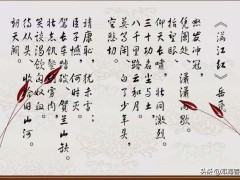 《满江红》岳飞
怒发冲冠
凭阑处、潇潇雨歇
抬望眼
仰天长啸、壮怀激烈
三十功名尘与土
八千里路云和月
莫等闲、白了少年头
空悲切
靖康耻、犹未雪
臣子恨、何时灭
驾长车踏破、贺兰山缺
壮志饥餐胡虏肉
笑谈渴饮匈奴血
待从头、收拾旧山河
朝天阙